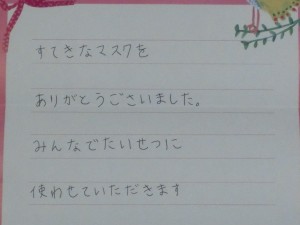 すてきなマスクを
ありがとうございました。
みんなでたいせつに
使わせていただきます